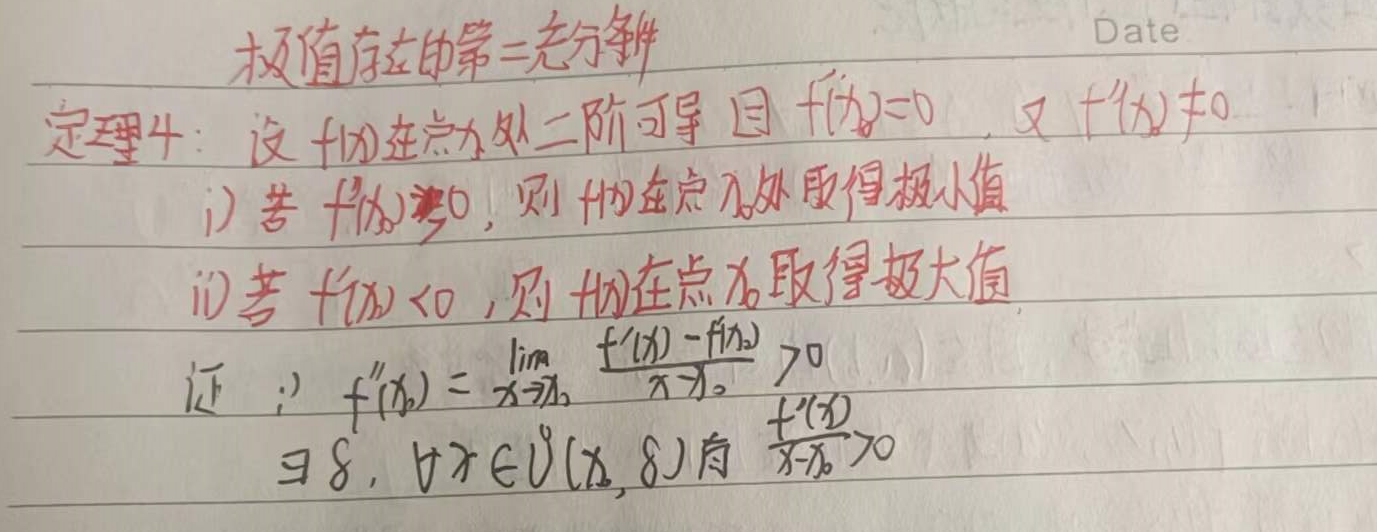 Date
极值存在的第二充分条件
定理4: 设 f(x)在点x₀处二阶可导 且 f'(x₀)=0 , 又 f''(x₀)≠0
i) 若 f''(x₀)>0, 则 f(x)在点 x₀处取得极小值
ii) 若 f''(x₀)<0, 则 f(x)在点 x₀ 取得极大值
证 i) f''(x₀) = lim x→x₀ f'(x)-f'(x₀) / x-x₀ >0
∃δ, ∀x∈Ů(x₀,δ)有 f'(x) / x-x₀ >0